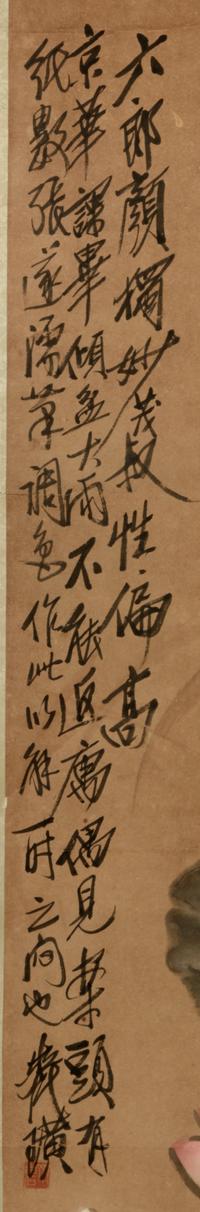 六郎顏獨妙茂叔性偏高
京華課畢傾盆大雨不能返寓偶見案頭有
紙數張遂濡筆調色作此以解一時之悶也 齊璜